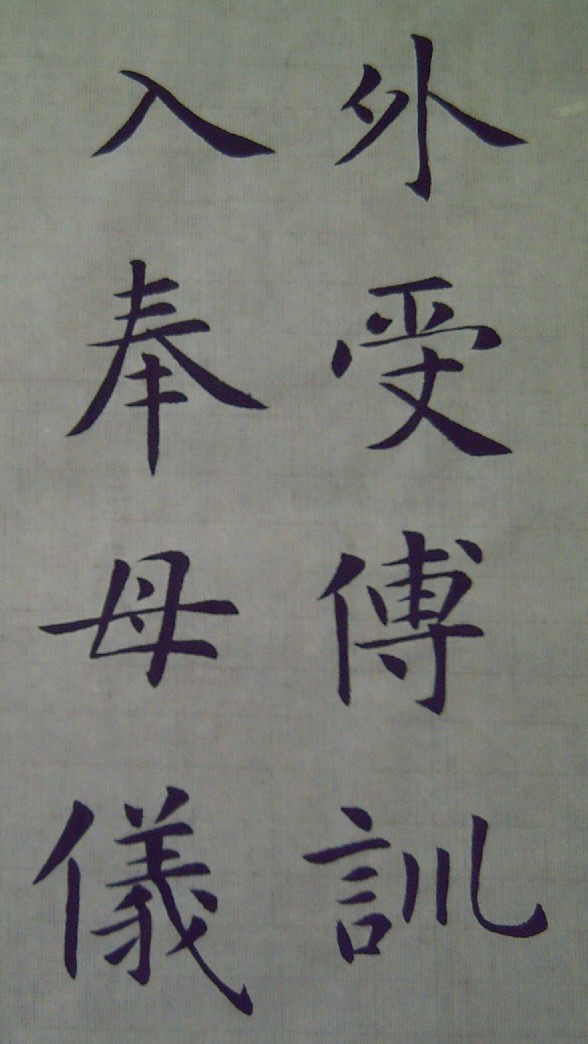 外受傅訓
入奉母儀